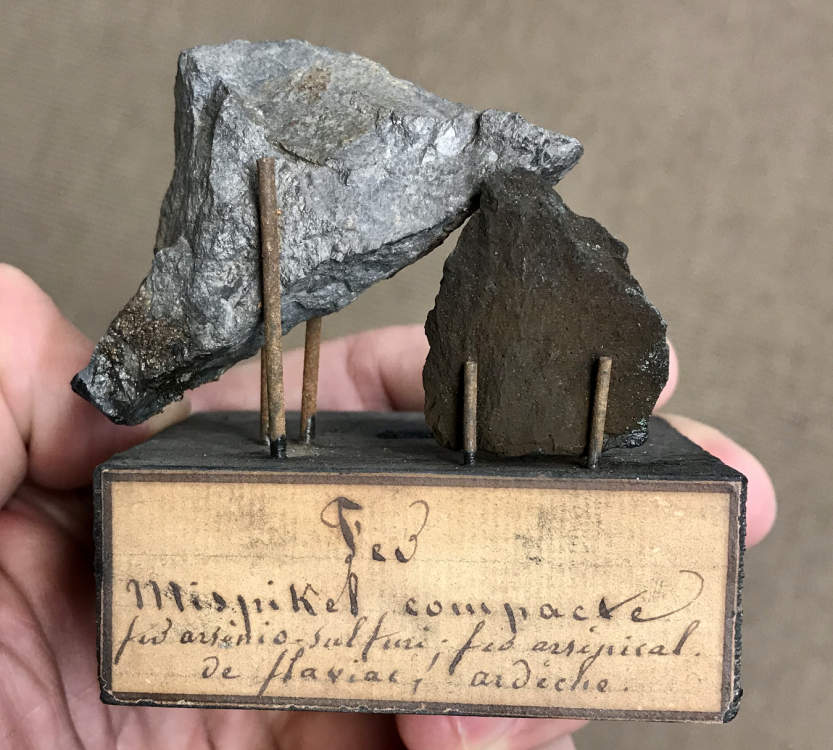 Fer
Mispikel compacte
fer arsénio-sulfuré; fer arsénical.
de flaviac, ardèche.